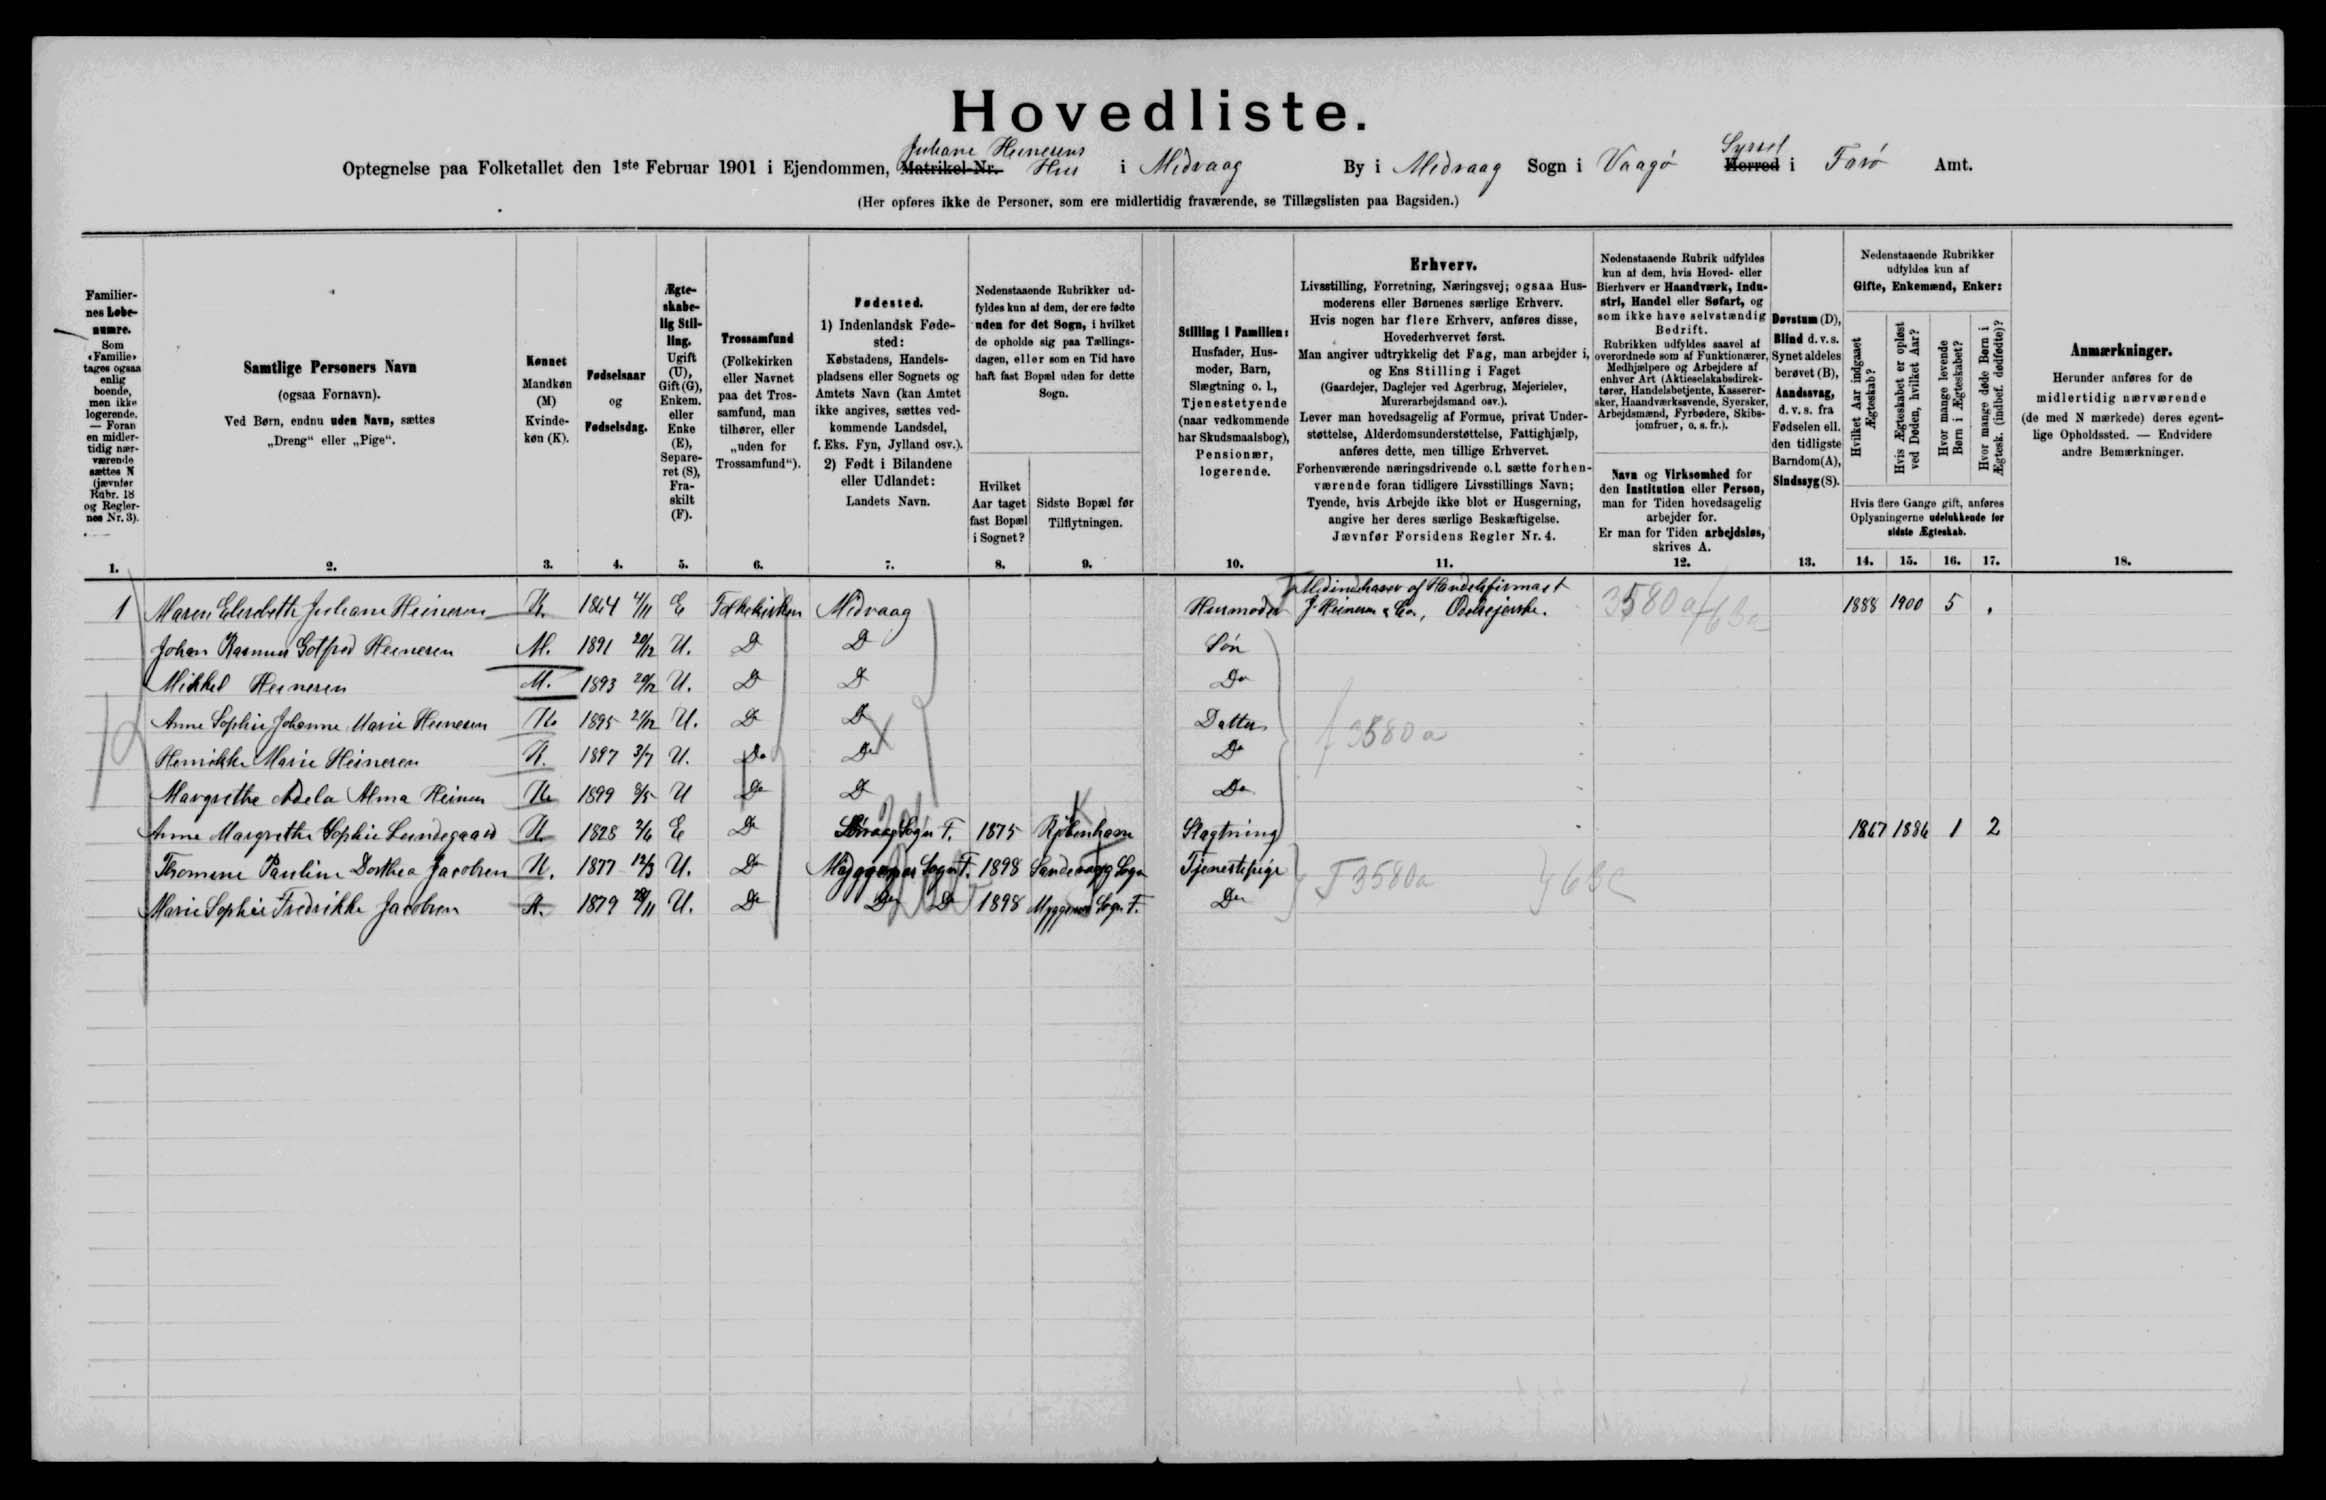 Hovedliste.
Juliane Heinesens
Syssel
Optegnelse paa Folketallet den 1ste Februar 1901 i Ejendommen, Matrikel-Nr. Hus i Midvaag By i Midvaag Sogn i Vaagø Herred i Færø Amt.
(Her opføres ikke de Personer, som ere midlertidig fraværende, se Tillægslisten paa Bagsiden.)
Familier-
nes Løbe-
numre.
Som
«Familie»
tages ogsaa
enlig
boende,
men ikke
logerende.
— Foran
en midler-
tidig nær-
værende
sættes N
(jævnfør
Rubr. 18
og Regler-
nes Nr. 3).
1.
Samtlige Personers Navn
(ogsaa Fornavn).
Ved Børn, endnu uden Navn, sættes
„Dreng“ eller „Pige“.
2.
Kønnet
Mandkøn
(M)
Kvinde-
køn (K).
3.
Fødselsaar
og
Fødselsdag.
4.
Ægte-
skabe-
lig Stil-
ling.
Ugift
(U),
Gift (G),
Enkem.
eller
Enke
(E),
Separe-
ret (S),
Fra-
skilt
(F).
5.
Trossamfund
(Folkekirken
eller Navnet
paa det Tros-
samfund, man
tilhører, eller
„uden for
Trossamfund“).
6.
Fødested.
1) Indenlandsk Føde-
sted:
Købstadens, Handels-
pladsens eller Sognets og
Amtets Navn (kan Amtet
ikke angives, sættes ved-
kommende Landsdel,
f. Eks. Fyn, Jylland osv.).
2) Født i Bilandene
eller Udlandet:
Landets Navn.
7.
Nedenstaaende Rubrikker ud-
fyldes kun af dem, der ere fødte
uden for det Sogn, i hvilket
de opholde sig paa Tællings-
dagen, eller som en Tid have
haft fast Bopæl uden for dette
Sogn.
Hvilket
Aar taget
fast Bopæl
i Sognet?
8.
Sidste Bopæl før
Tilflytningen.
9.
Stilling i Familien:
Husfader, Hus-
moder, Barn,
Slægtning o. l.,
Tjenestetyende
(naar vedkommende
har Skudsmaalsbog),
Pensionær,
logerende.
10.
Erhverv.
Livsstilling, Forretning, Næringsvej; ogsaa Hus-
moderens eller Børnenes særlige Erhverv.
Hvis nogen har flere Erhverv, anføres disse,
Hovederhvervet først.
Man angiver udtrykkelig det Fag, man arbejder i,
og Ens Stilling i Faget
(Gaardejer, Daglejer ved Agerbrug, Mejerielev,
Murerarbejdsmand osv.).
Lever man hovedsagelig af Formue, privat Under-
støttelse, Alderdomsunderstøttelse, Fattighjælp,
anføres dette, men tillige Erhvervet.
Forhenværende næringsdrivende o. l. sætte forhen-
værende foran tidligere Livsstillings Navn;
Tyende, hvis Arbejde ikke blot er Husgerning,
angive her deres særlige Beskæftigelse.
Jævnfør Forsidens Regler Nr. 4.
11.
Nedenstaaende Rubrik udfyldes
kun af dem, hvis Hoved- eller
Bierhverv er Haandværk, Indu-
stri, Handel eller Søfart, og
som ikke have selvstændig
Bedrift.
Rubrikken udfyldes saavel af
overordnede som af Funktionærer,
Medhjælpere og Arbejdere af
enhver Art (Aktieselskabsdirek-
tører, Handelsbetjente, Kasserer-
sker, Haandværkssvende, Syersker,
Arbejdsmænd, Fyrbødere, Skibs-
jomfruer, o. s. fr.).
Navn og Virksomhed for
den Institution eller Person,
man for Tiden hovedsagelig
arbejder for.
Er man for Tiden arbejdsløs,
skrives A.
12.
Døvstum (D),
Blind d. v. s.
Synet aldeles
berøvet (B),
Aandssvag,
d. v. s. fra
Fødselen ell.
den tidligste
Barndom (A),
Sindssyg (S).
13.
Nedenstaaende Rubrikker
udfyldes kun af
Gifte, Enkemænd, Enker:
Hvilket Aar indgaaet
Ægteskab?
Hvis Ægteskabet er opløst
ved Døden, hvilket Aar?
Hvor mange levende
Børn i Ægteskabet?
Hvor mange døde Børn i
Ægtesk. (indbef. dødfødte)?
Hvis flere Gange gift, anføres
Oplysningerne udelukkende for
sidste Ægteskab.
14. 15. 16. 17.
Anmærkninger.
Herunder anføres for de
midlertidig nærværende
(de med N mærkede) deres egent-
lige Opholdssted. — Endvidere
andre Bemærkninger.
18.
Medindehaver af Handelsfirmaet
1 Maren Elisabeth Juliane Heinesen K. 1864 4/11 E Folkekirken Midvaag Husmoder J. Heinesen & Co., Odelsejerske. 3580a 1888 1900 5 .
Johan Rasmus Gotfred Heinesen M. 1891 20/12 U. Do Do Søn
Mikkel Heinesen M. 1893 29/12 U. Do Do Do
Anne Sophie Johanne Marie Heinesen K. 1895 21/12 U. Do Do Datter 3580a
Henrikke Marie Heinesen K. 1897 3/7 U. Do Do Do
Margrethe Adela Alma Heinesen K. 1899 8/5 U Do Do Do
Anne Margrethe Sophie Lundegaard K. 1828 2/6 E Do Sörvaag Sogn F. 1875 Kjøbenhavn Slægtning 1867 1886 1 2
Thomine Pauline Dorthea Jacobsen K. 1877 12/3 U. Do Myggenæs Sogn F. 1898 Sandevaag Sogn Tjenestepige T 3580a
Marie Sophie Fredrikke Jacobsen K. 1879 28/11 U. Do Do Do 1898 Myggenæs Sogn F. Do